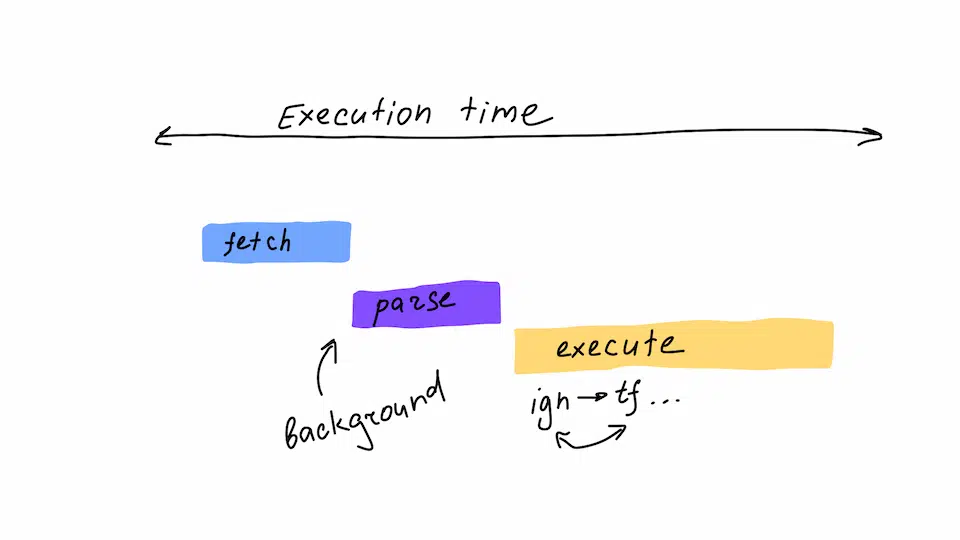 Execution time
fetch
parse
execute
Background
ign → tf ...